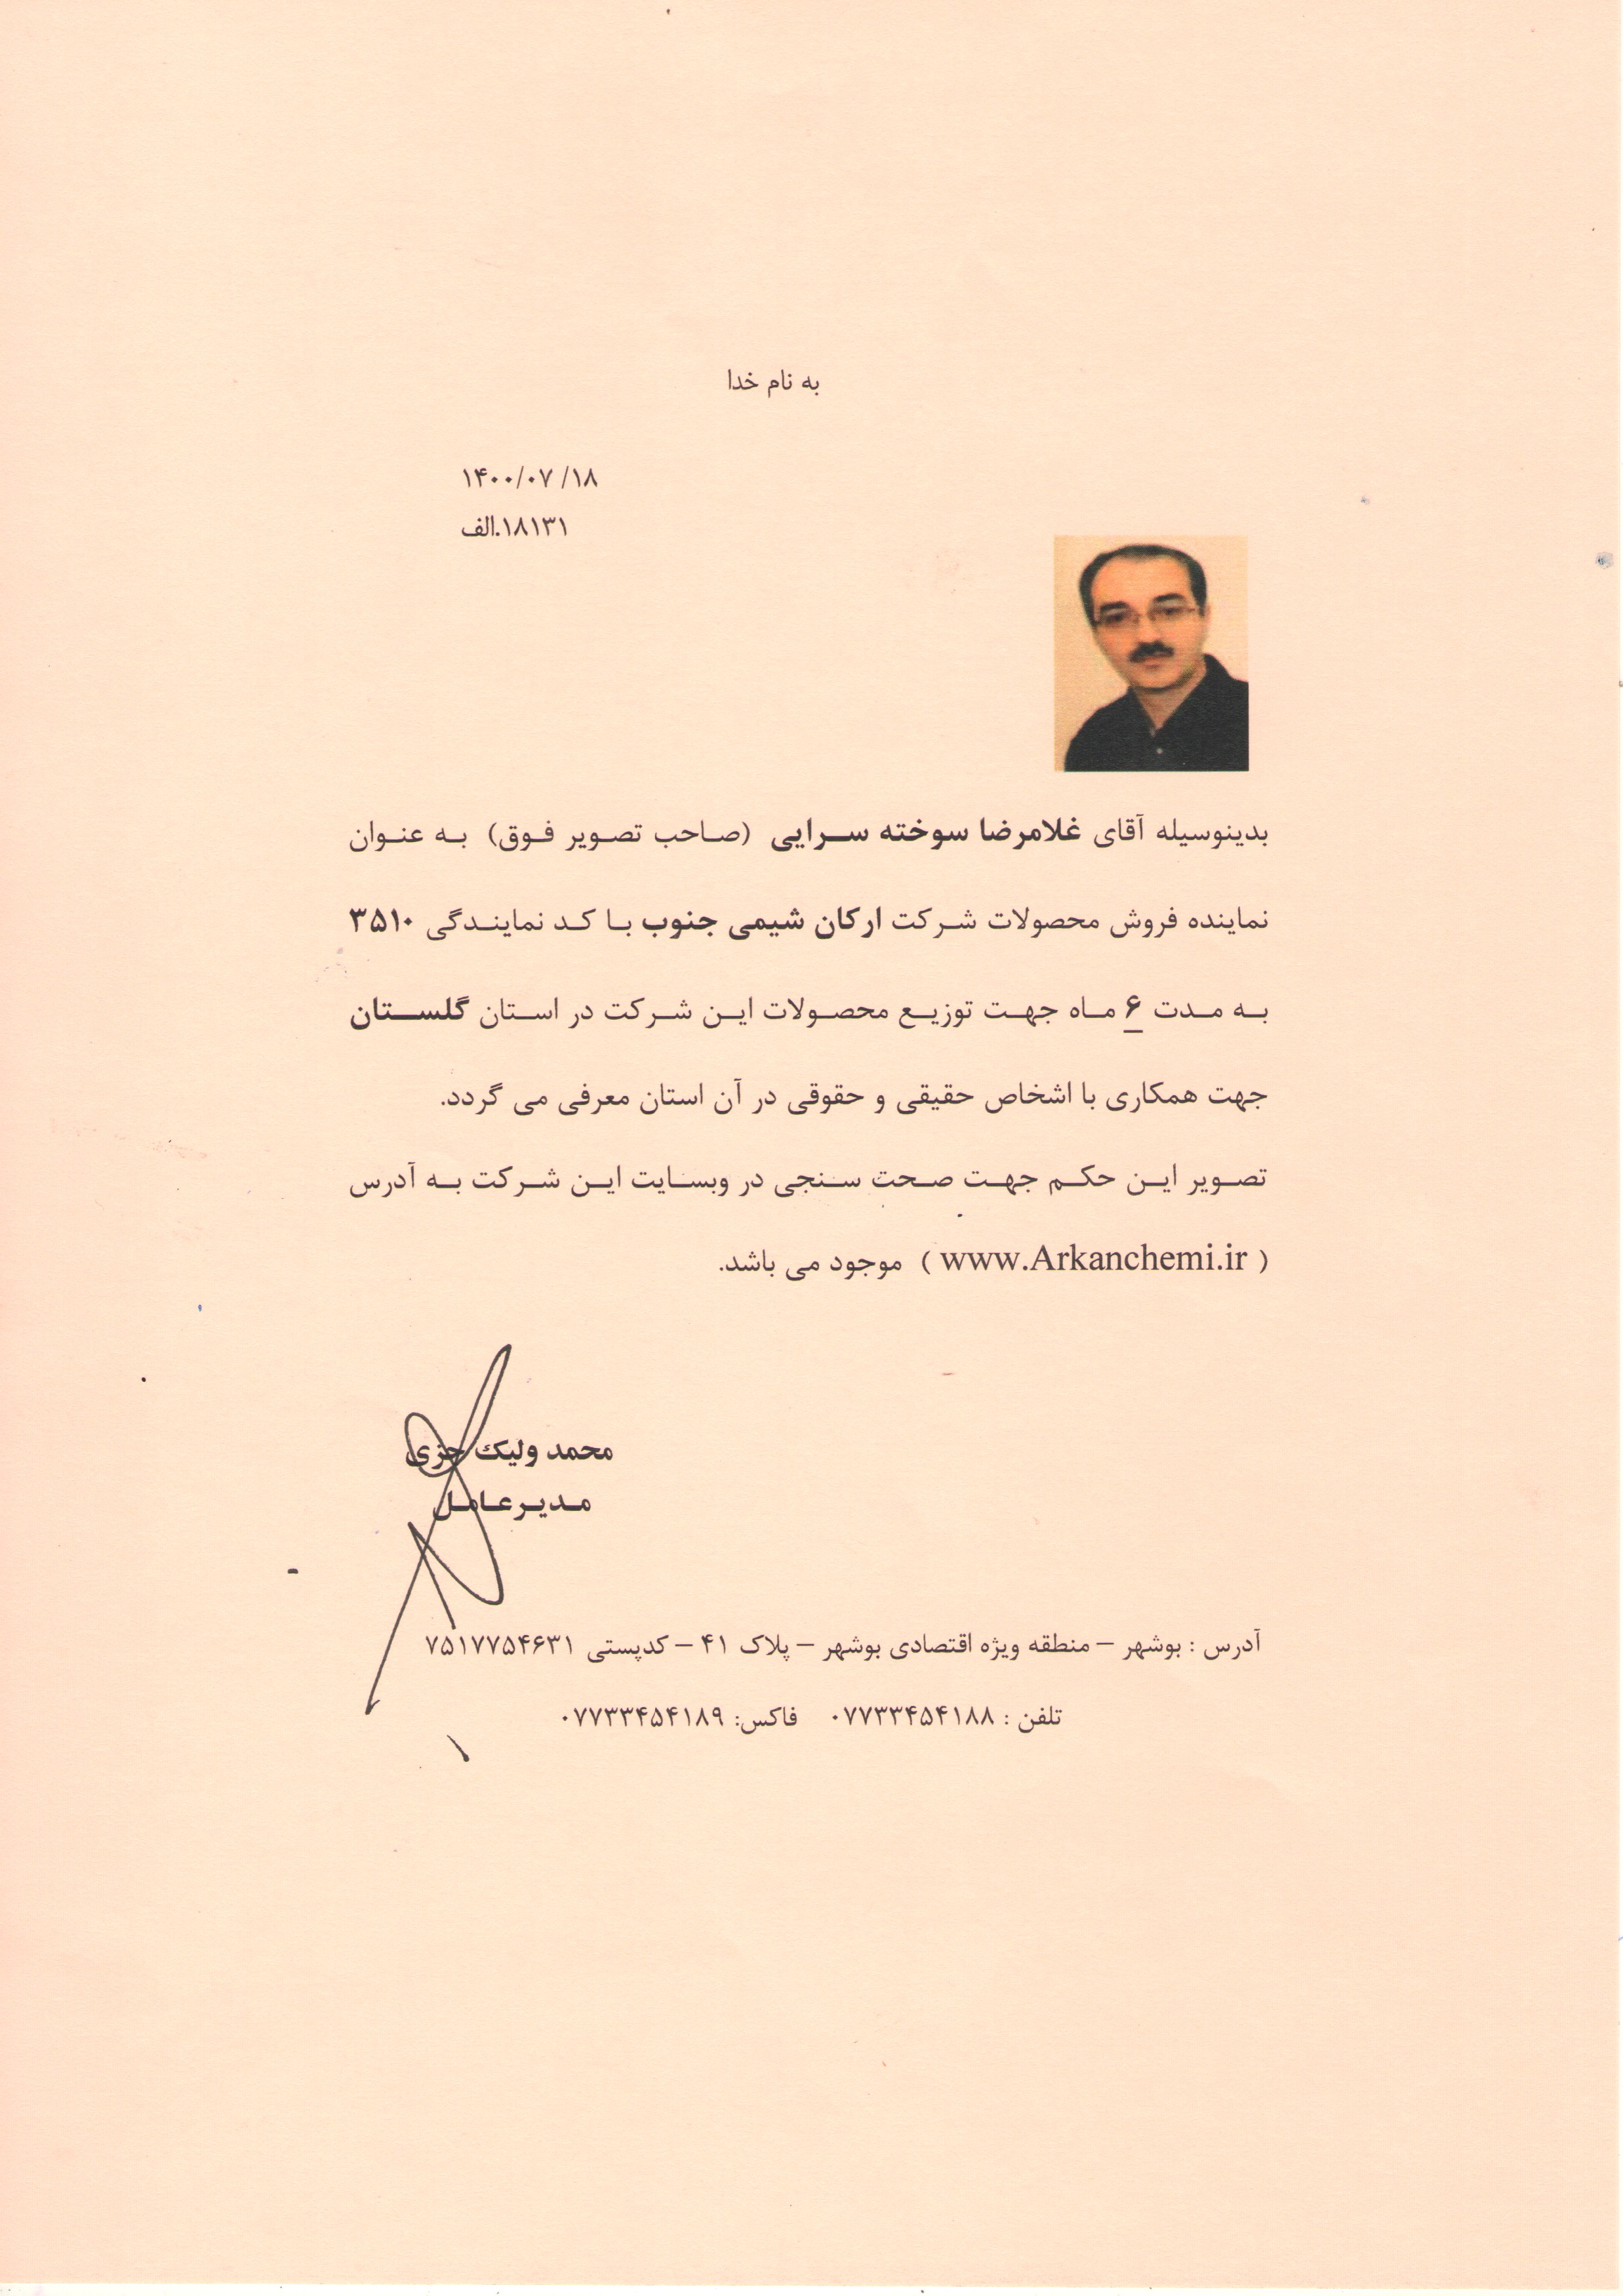 به نام خدا
۱۴۰۰/۰۷/۱۸
۱۸۱۳۱.الف
بدینوسیله آقای غلامرضا سوخته سرایی (صاحب تصویر فوق) به عنوان
نماینده فروش محصولات شرکت ارکان شیمی جنوب با کد نمایندگی ۳۵۱۰
به مدت ۶ ماه جهت توزیع محصولات این شرکت در استان گلستان
جهت همکاری با اشخاص حقیقی و حقوقی در آن استان معرفی می گردد.
تصویر این حکم جهت صحت سنجی در وبسایت این شرکت به آدرس
( www.Arkanchemi.ir ) موجود می باشد.
محمد ولیک جزی
مدیرعامل
آدرس : بوشهر – منطقه ویژه اقتصادی بوشهر – پلاک ۴۱ – کدپستی ۷۵۱۷۷۵۴۶۳۱
تلفن : ۰۷۷۳۳۴۵۴۱۸۸ فاکس: ۰۷۷۳۳۴۵۴۱۸۹